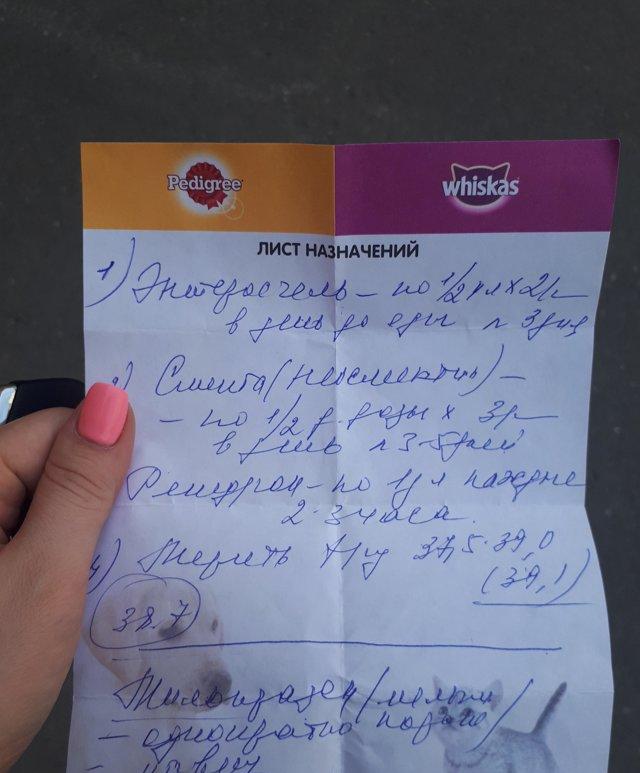 Pedigree
whiskas
ЛИСТ НАЗНАЧЕНИЙ
1) Энтеросгель - по 1/2 ч л х 2 р
в день до еды п 3 дня
2) Смекта (неосмектин) -
- по 1/2 д. дозы х 3 р
в день п 3-5 дней
Регидрон - по 1 ч л каждые
2-3 часа.
4) Мерить 37,5-39,0
(39,1)
38.7
/мелким
- однократно